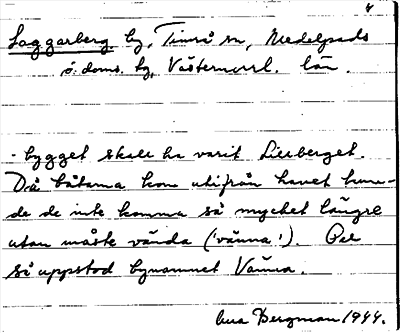 4
Laggarberg by, Timrå sn, Medelpads
ö. doms. hg, Västernorrl. län.
- bygget skall ha varit Lillberget.
Då båtarna kom utifrån havet kun-
de de inte komma så mycket längre
utan måste vända ('vänna'). Och
så uppstod bynamnet Vänna.
Bergman 1944.